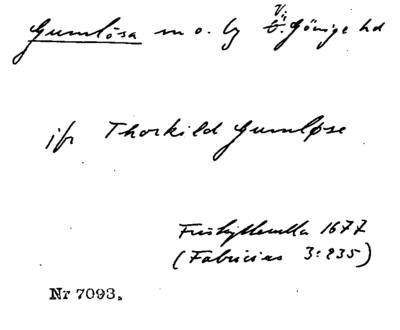 Gumlösa sn o. by V. Göinge hd
jfr Thorkild Gumløse
Friskyttemella 1677
(Fabricius 3:235)
Nr 7093.